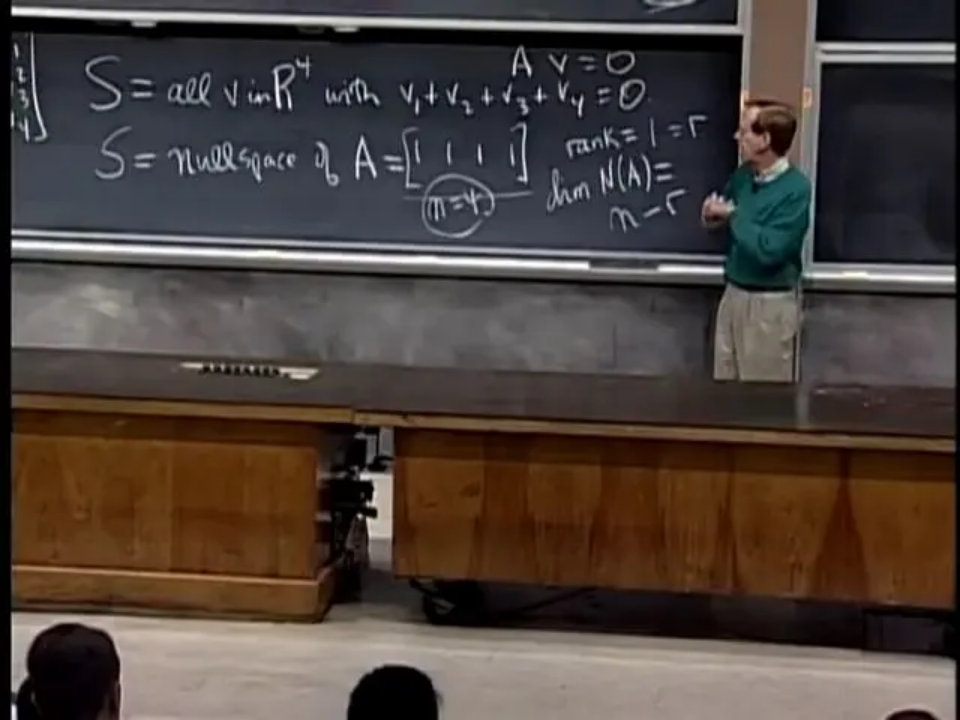 1
2
3
4
A v = 0
S = all v in R⁴ with v₁ + v₂ + v₃ + v₄ = 0
S = nullspace of A = [1 1 1 1]
rank = 1 = r
n = 4
dim N(A) =
n - r